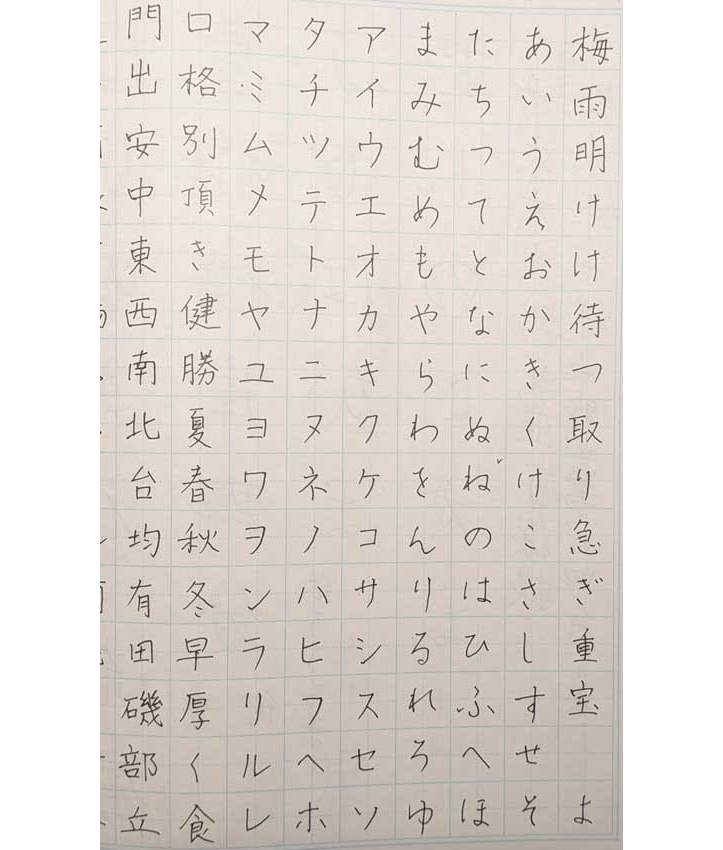 梅雨明けけ待つ取り急ぎ重宝よ
あいうえおかきくけこさしすせそ
たちつてとなにぬねのはひふへほ
まみむめもやらわをんりるれろゆ
アイウエオカキクケコサシスセソ
タチツテトナニヌネノハヒフヘホ
マミムメモヤユヨワヲンラリルレ
ロ格別頂き健勝夏春秋冬早厚く食
門出安中東西南北台均有田磯部立